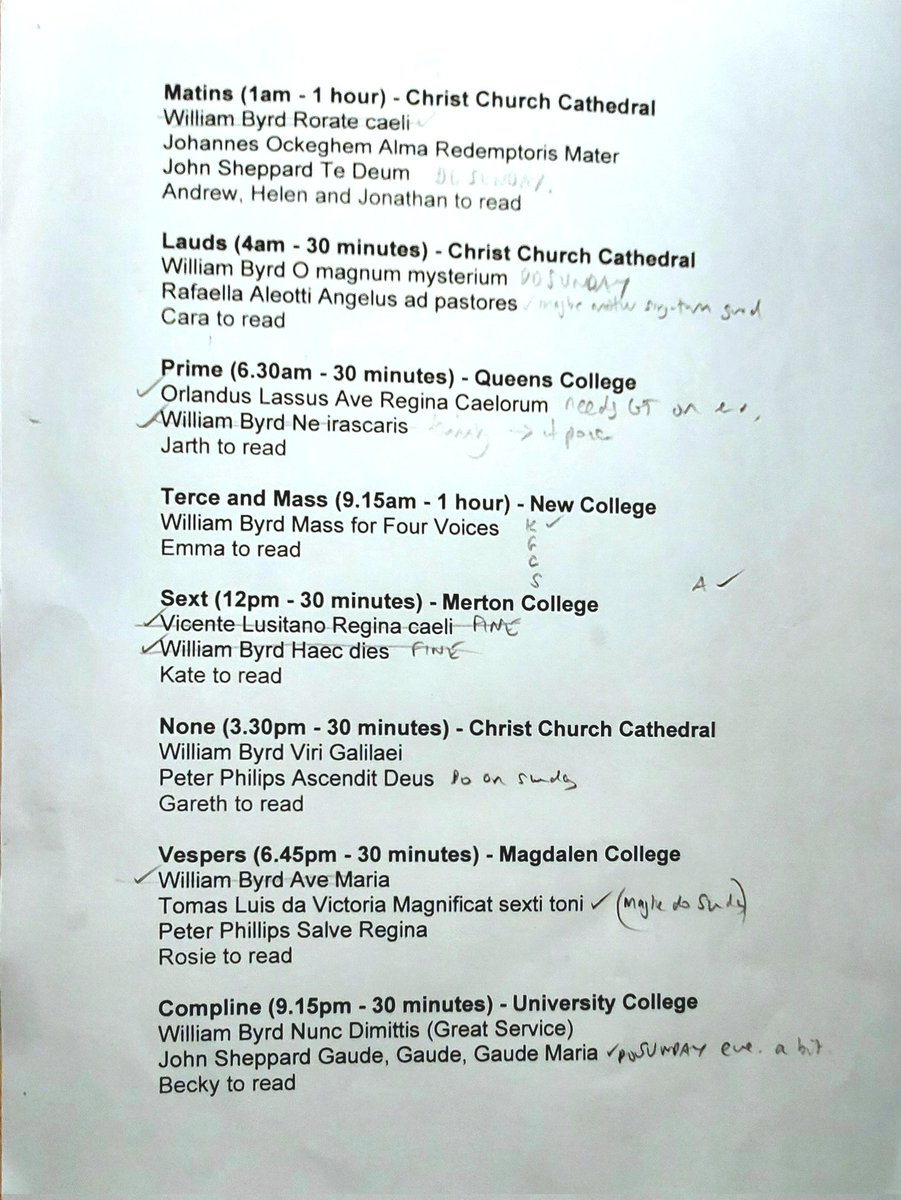 Matins (1am - 1 hour) - Christ Church Cathedral
William Byrd Rorate caeli ✓
Johannes Ockeghem Alma Redemptoris Mater
John Sheppard Te Deum DO SUNDAY.
Andrew, Helen and Jonathan to read
Lauds (4am - 30 minutes) - Christ Church Cathedral
William Byrd O magnum mysterium DO SUNDAY
Rafaella Aleotti Angelus ad pastores maybe another sing-through good
Cara to read
Prime (6.30am - 30 minutes) - Queens College
✓ Orlandus Lassus Ave Regina Caelorum needs GT on
✓ William Byrd Ne irascaris
Jarth to read
Terce and Mass (9.15am - 1 hour) - New College
William Byrd Mass for Four Voices K ✓
Emma to read G
C
S
A ✓
Sext (12pm - 30 minutes) - Merton College
✓ Vicente Lusitano Regina caeli FINE
✓ William Byrd Haec dies FINE
Kate to read
None (3.30pm - 30 minutes) - Christ Church Cathedral
William Byrd Viri Galilaei
Peter Philips Ascendit Deus Do on Sunday
Gareth to read
Vespers (6.45pm - 30 minutes) - Magdalen College
✓ William Byrd Ave Maria
Tomas Luis da Victoria Magnificat sexti toni ✓ (Maybe do Sunday)
Peter Phillips Salve Regina
Rosie to read
Compline (9.15pm - 30 minutes) - University College
William Byrd Nunc Dimittis (Great Service)
John Sheppard Gaude, Gaude, Gaude Maria ✓ DO SUNDAY eve. a bit.
Becky to read